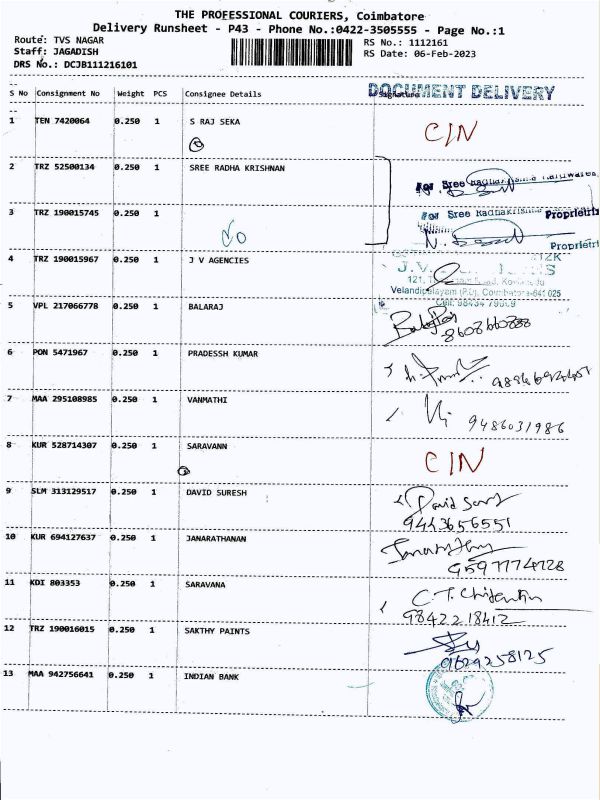 THE PROFESSIONAL COURIERS, Coimbatore
Delivery Runsheet - P43 - Phone No.:0422-3505555 - Page No.:1
Route: TVS NAGAR
Staff: JAGADISH
DRS No.: DCJB111216101
RS No.: 1112161
RS Date: 06-Feb-2023
S No Consignment No Weight PCS Consignee Details Signature
DOCUMENT DELIVERY
1 TEN 7420064 0.250 1 S RAJ SEKA C/N
2 TRZ 52500134 0.250 1 SREE RADHA KRISHNAN
For Sree Radhakrishna Hardwares
3 TRZ 190015745 0.250 1
For Sree Radhakrishna
Proprietrix
Proprietrix
4 TRZ 190015967 0.250 1 J V AGENCIES
J.V.
121, Road,
Velandipalayam (P.O), Coimbatore-641 025
Cell: 98434 79009
5 VPL 217066778 0.250 1 BALARAJ
8608660888
6 PON 5471967 0.250 1 PRADESSH KUMAR
7 MAA 295108985 0.250 1 VANMATHI
9486031986
8 KUR 528714307 0.250 1 SARAVANN C/N
9 SLM 313129517 0.250 1 DAVID SURESH
David
9443656551
10 KUR 694127637 0.250 1 JANARATHANAN
9597774728
11 KDI 803353 0.250 1 SARAVANA
C.T.
9842218412
12 TRZ 190016015 0.250 1 SAKTHY PAINTS
9629258125
13 MAA 942756641 0.250 1 INDIAN BANK